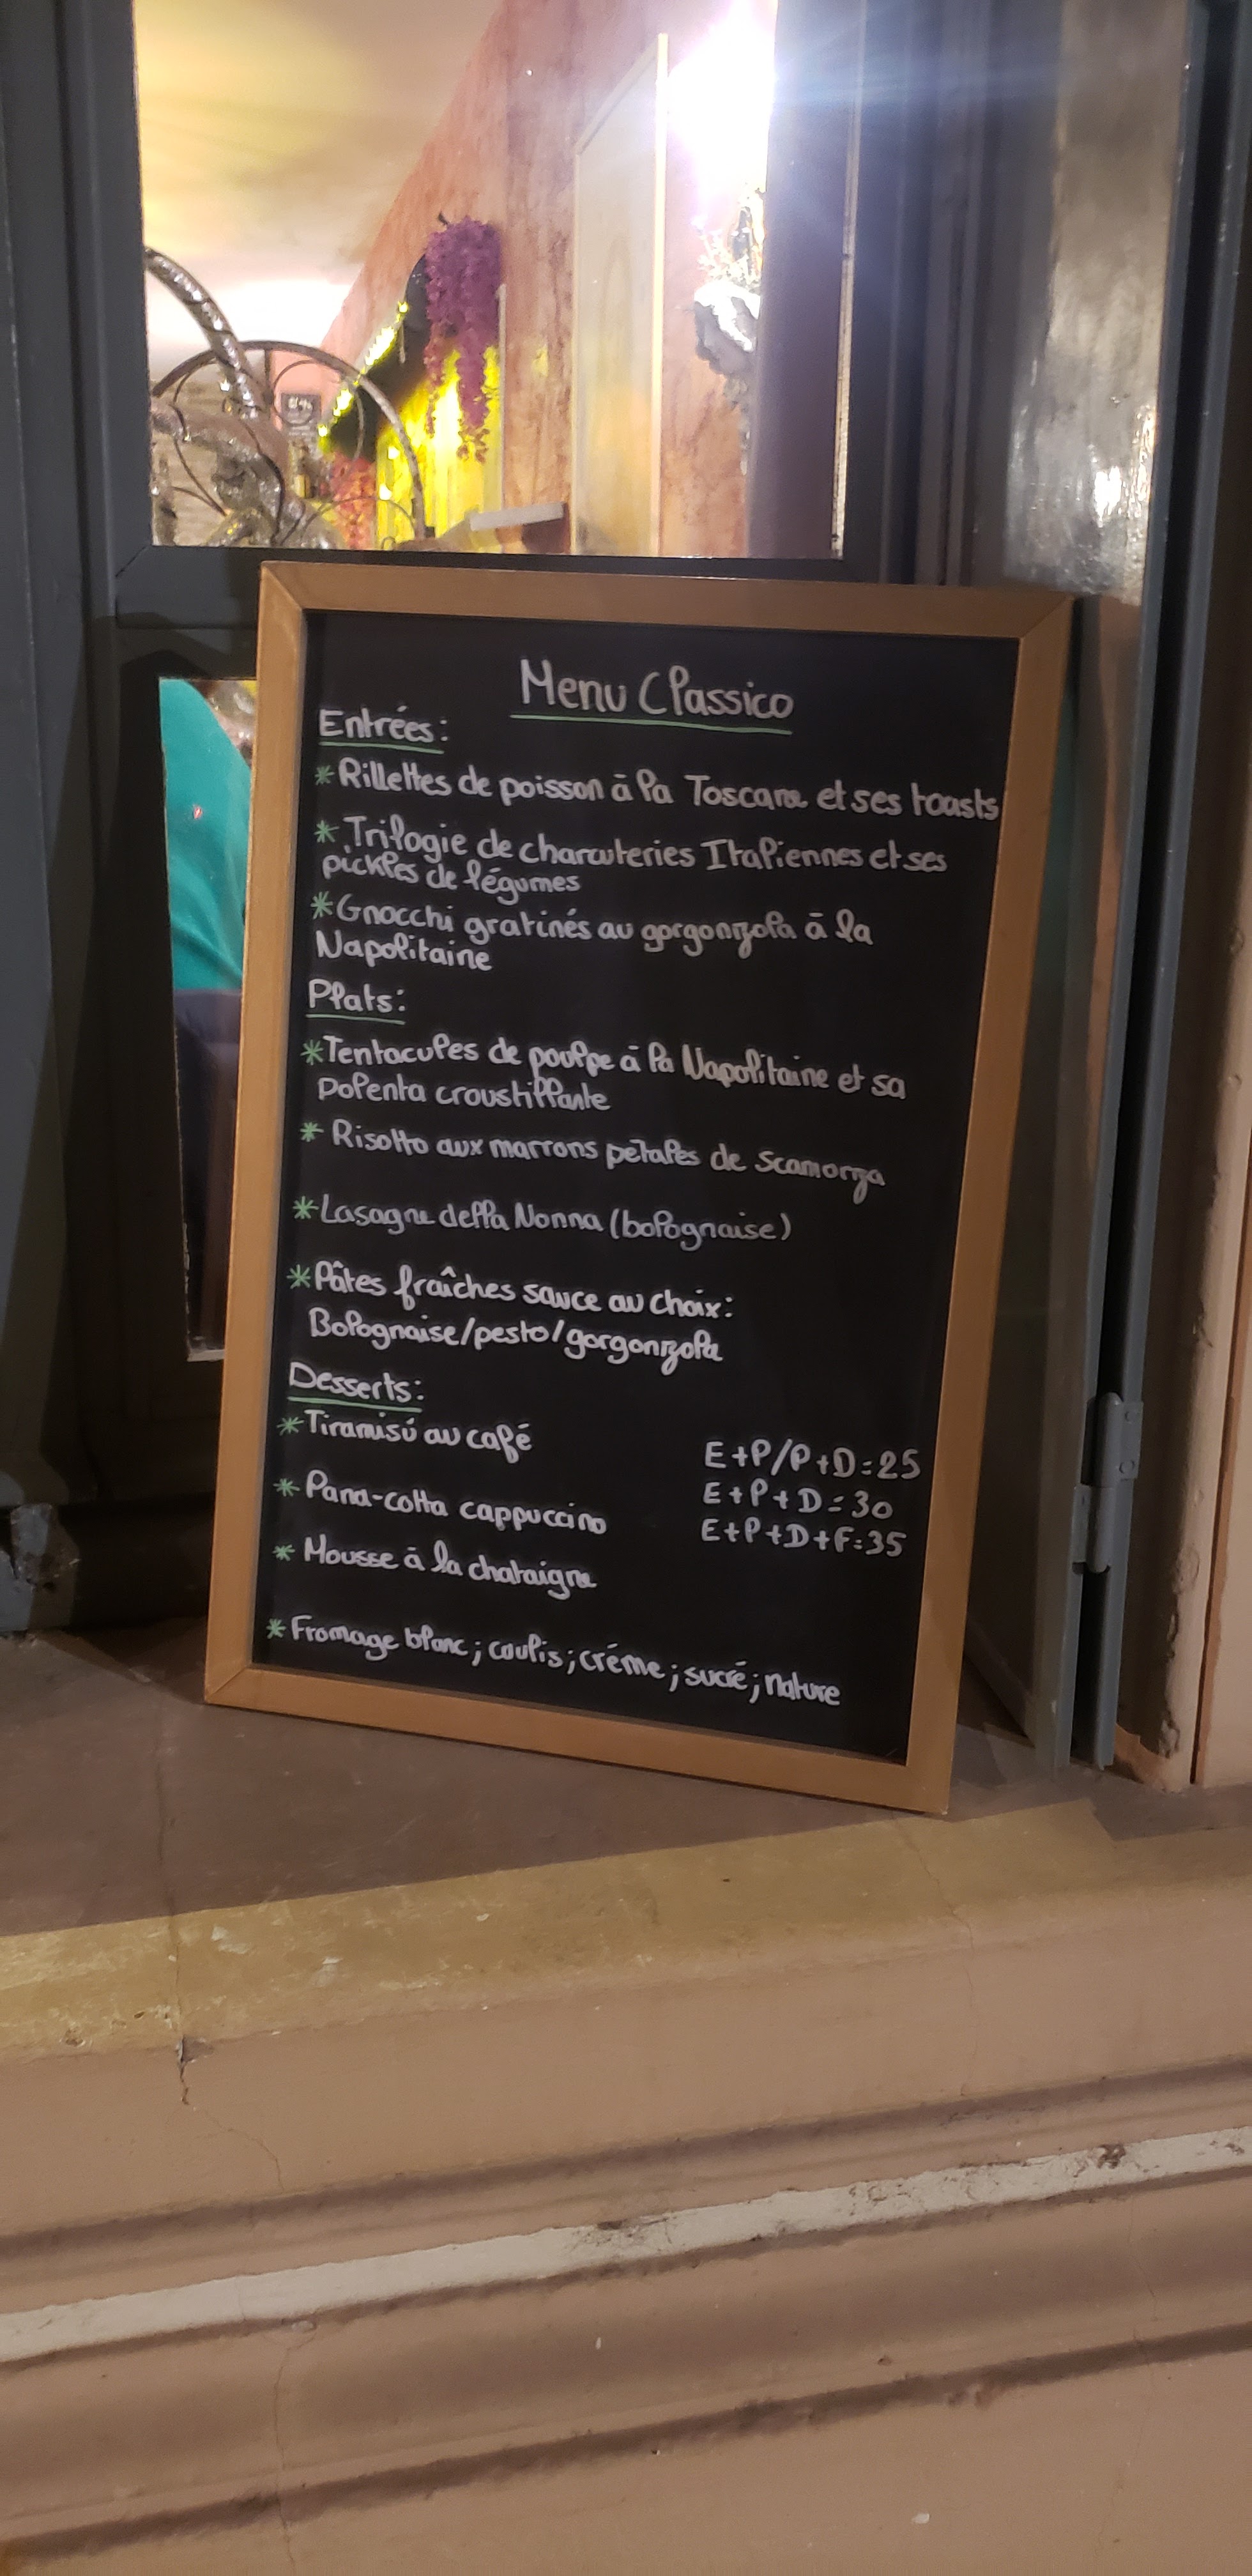 Menu Classico
Entrées:
*Rillettes de poisson à la Toscane et ses toasts
*Trilogie de charcuteries Italiennes et ses
pickles de légumes
*Gnocchi gratinés au gorgonzola à la
Napolitaine
Plats:
*Tentacules de poulpe à la Napolitaine et sa
polenta croustillante
* Risotto aux marrons petales de scamorza
*Lasagne della Nonna (bolognaise)
*Pâtes fraîches sauce au choix:
Bolognaise/pesto/gorgonzola
Desserts:
*Tiramisú au café
*Pana-cotta cappuccino
*Mousse à la chataigne
*Fromage blanc; coulis; créme; sucré; nature
E+P/P+D=25
E+P+D=30
E+P+D+F=35